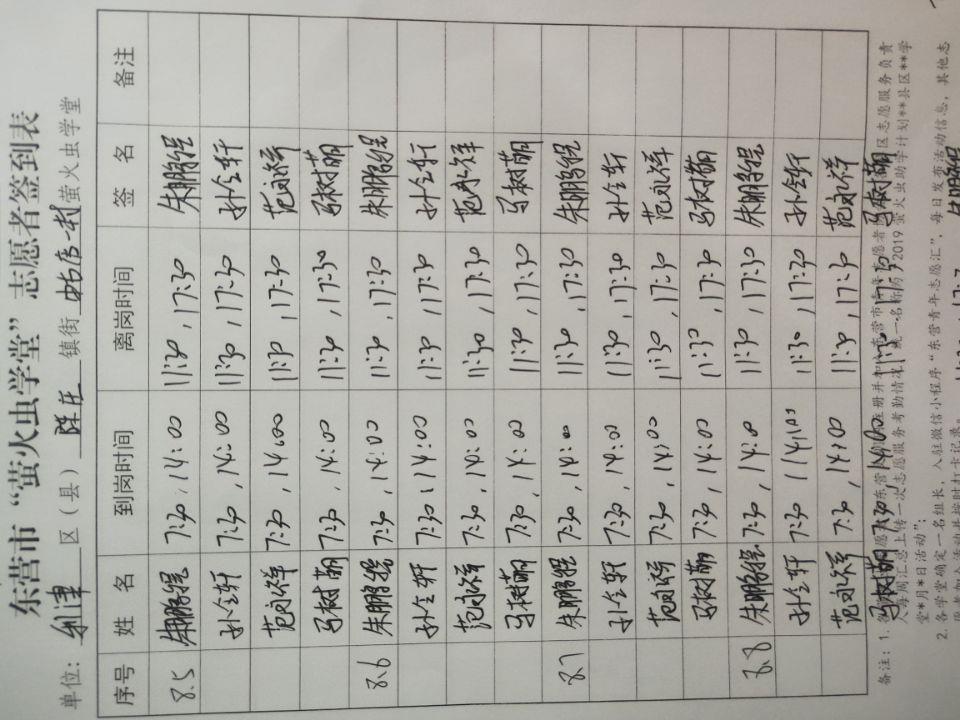 东营市“萤火虫学堂”志愿者签到表
单位: 利津 区（县） 陈庄 镇街 中心店一村 萤火虫学堂
序号 姓 名 到岗时间 离岗时间 签 名 备注
8.5 朱鹏程 7:30, 14:00 11:30, 17:30 朱鹏程
孙全轩 7:30, 14:00 11:30, 17:30 孙全轩
范永祥 7:30, 14:00 11:30, 17:30 范永祥
马树萌 7:30, 14:00 11:30, 17:30 马树萌
8.6 朱鹏程 7:30, 14:00 11:30, 17:30 朱鹏程
孙全轩 7:30, 14:00 11:30, 17:30 孙全轩
范永祥 7:30, 14:00 11:30, 17:30 范永祥
马树萌 7:30, 14:00 11:30, 17:30 马树萌
8.7 朱鹏程 7:30, 14:00 11:30, 17:30 朱鹏程
孙全轩 7:30, 14:00 11:30, 17:30 孙全轩
范永祥 7:30, 14:00 11:30, 17:30 范永祥
马树萌 7:30, 14:00 11:30, 17:30 马树萌
8.8 朱鹏程 7:30, 14:00 11:30, 17:30 朱鹏程
孙全轩 7:30, 14:00 11:30, 17:30 孙全轩
范永祥 7:30, 14:00 11:30, 17:30 范永祥
马树萌 7:30, 14:00 11:30, 17:30 马树萌
备注: 1. 区志愿服务负责
人每周汇总上传一次志愿服务考勤情况, 2019萤火虫助学计划**县区**学
堂*月*日活动”;
2. 各学堂确定一名组长, 入驻微信小程序“东营青年志愿汇”, 每日发布活动信息, 其他志
愿者加入活动并按时打卡记录。